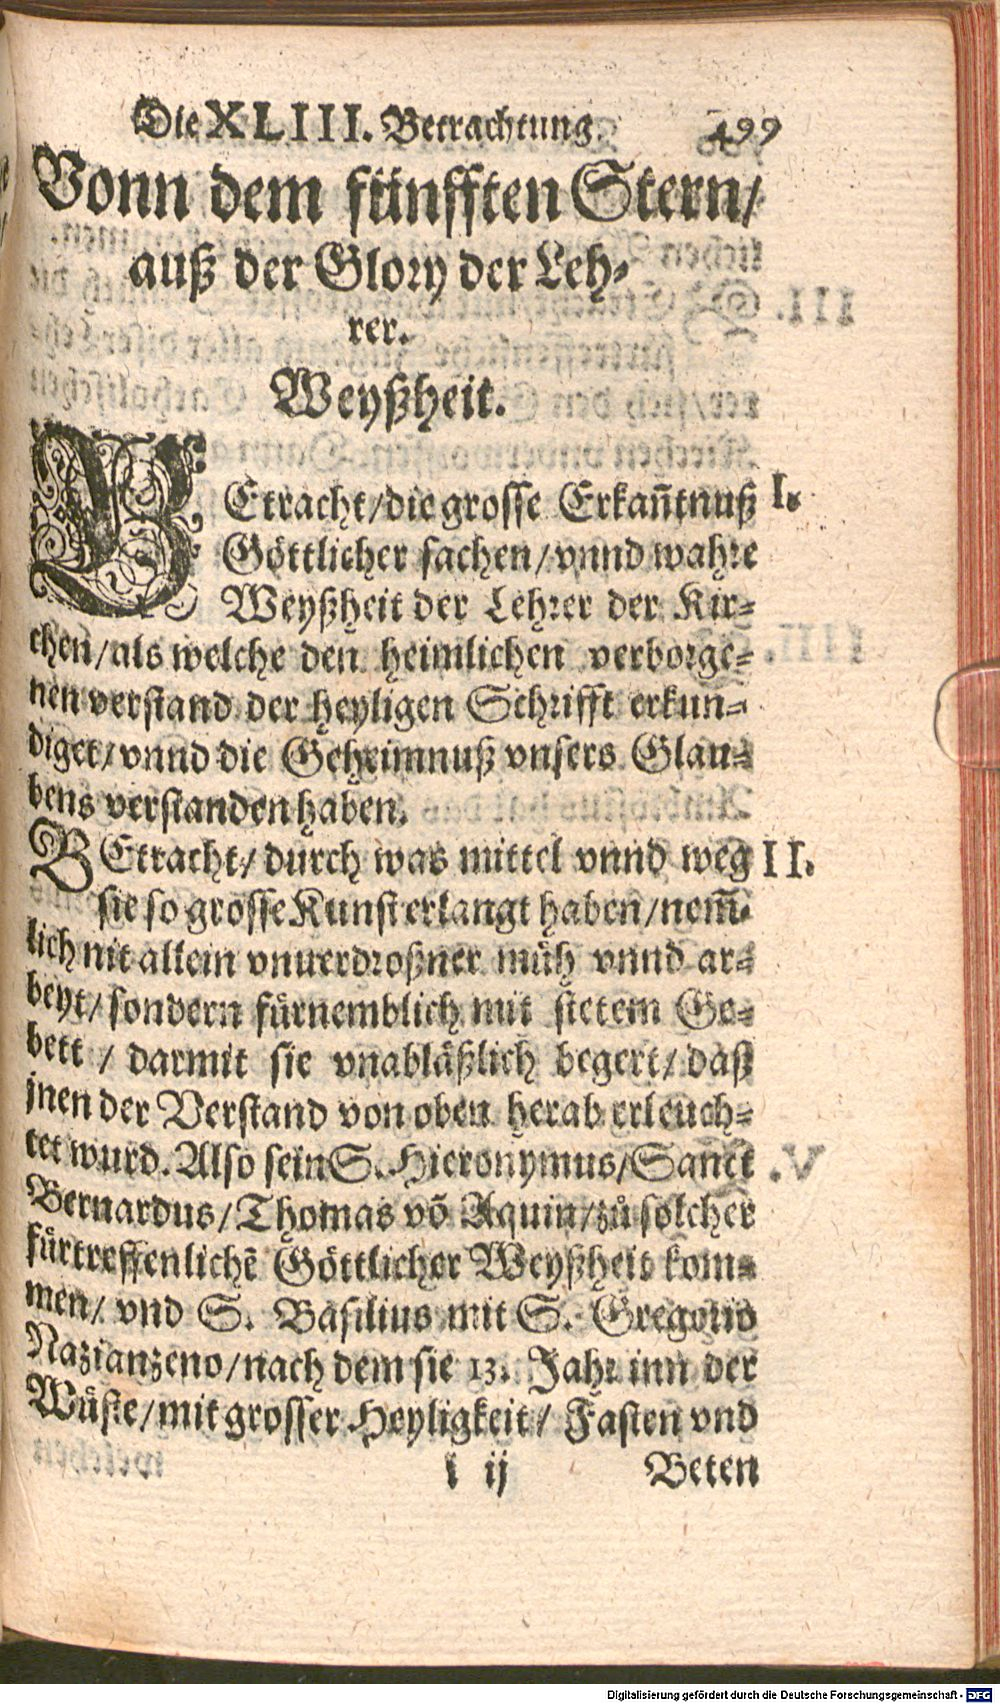 Die XLIII. Betrachtung. 499
Vonn dem fünfften Stern/
auß der Glory der Leh-
rer.
Weyßheit.
BEtracht/die grosse Erkañtnuß I.
Göttlicher sachen/vnnd wahre
Weyßheit der Lehrer der Kir-
chen/als welche den heimlichen verborge-
nen verstand der heyligen Schrifft erkun-
diget/vnnd die Geheimnuß vnsers Glau-
bens verstanden haben.
BEtracht/durch was mittel vnnd weg II.
sie so grosse Kunst erlangt haben/nem̃-
lich nit allein vnuerdroßner müh vnnd ar-
beyt/sondern fürnemblich mit stetem Ge-
bett / darmit sie vnabläßlich begert/daß
jnen der Verstand von oben herab erleuch-
tet wurd. Also sein S. Hieronymus/Sanct
Bernardus/Thomas võ Aquin/zů solcher
fürtreffenlichẽ Göttlicher Weyßheit kom-
men/ vnd S. Basilius mit S. Gregorio
Nazianzeno/nach dem sie 13. Jahr inn der
Wüste/mit grosser Heyligkeit/ Fasten vnd
l ij Beten
Digitalisierung gefördert durch die Deutsche Forschungsgemeinschaft - DFG